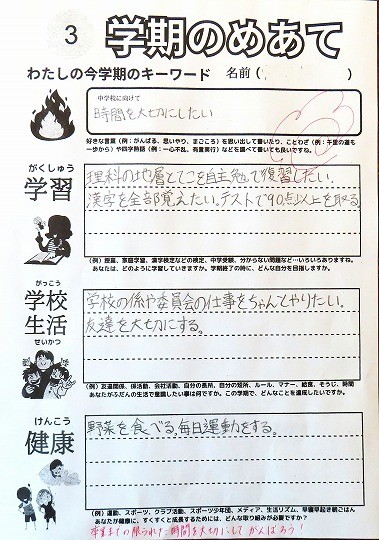 3 学期のめあて
わたしの今学期のキーワード 名前( )
中学校に向けて
時間を大切にしたい
好きな言葉(例:がんばる、思いやり、まごころ)を思い出して書いたり、ことわざ(例:千里の道も
一歩から)や四字熟語(例:一心不乱、有言実行)などを調べて書いても良いですね。
がくしゅう
学習
理科の地層とてこを自主勉で復習したい。
漢字を全部覚えたい。テストで90点以上を取る
(例)授業、家庭学習、漢字検定などの検定、中学受験、分からない問題など…いろいろありますね。
あなたは、どのように学習していきますか。学期終了の時に、どんな自分を目指しますか。
がっこう
学校
生活
せいかつ
学校の係や委員会の仕事をちゃんとやりたい。
友達を大切にする。
(例)友達関係、係活動、会社活動、自分の長所、自分の短所、ルール、マナー、給食、そうじ、時間
あなたがふだんの生活で意識したい事は何ですか。この学期で、どんなことを達成したいですか。
けんこう
健康
野菜を食べる。毎日運動をする。
(例)運動、スポーツ、クラブ活動、スポーツ少年団、メディア、生活リズム、早寝早起き朝ごはん
あなたが健康に、すくすくと成長するためには、どんな取り組みが必要ですか?
卒業までの限られた時間を大切にしてがんばろう!